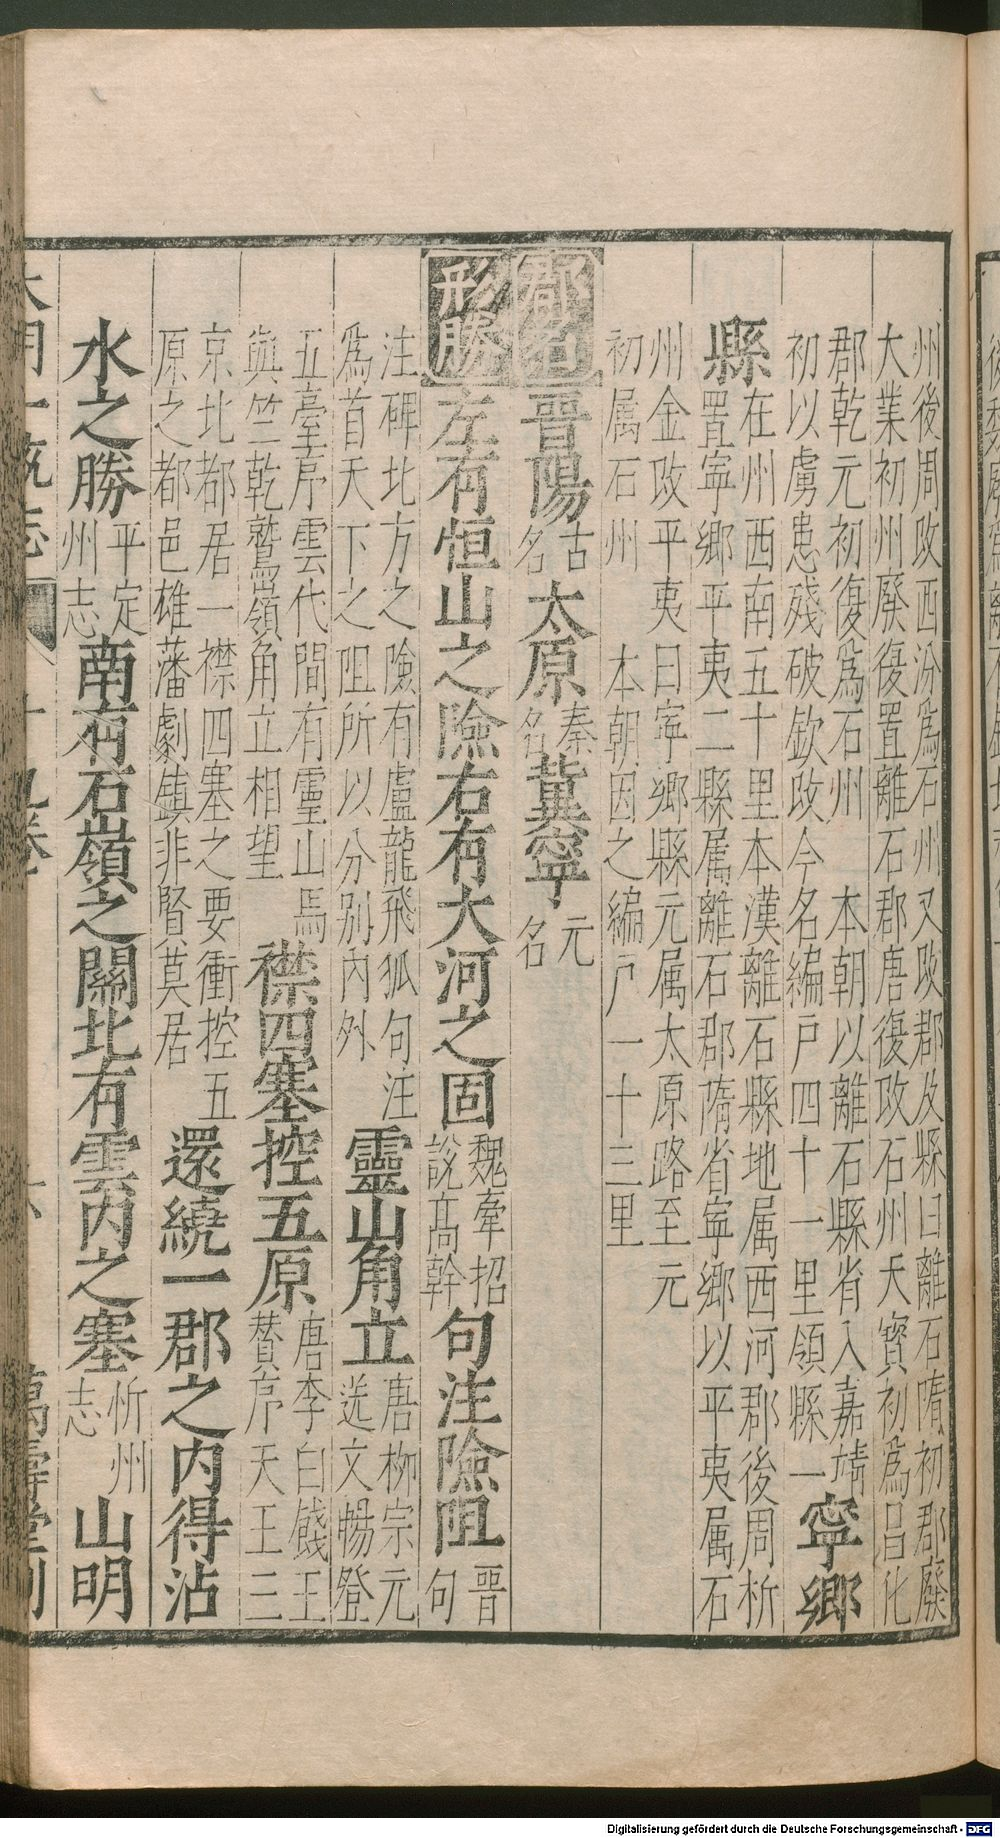 州後周改西汾爲石州又改郡及縣曰離石隋初郡廢
大業初州廢復置離石郡唐復改石州天寶初爲昌化
郡乾元初復爲石州　本朝以離石縣省入嘉靖
初以虜患殘破欽改今名編戶四十一里領縣一寧鄉
縣在州西南五十里本漢離石縣地属西河郡後周析
置寧鄉平夷二縣属離石郡隋省寧鄉以平夷属石
州金改平夷曰寧鄉縣元属太原路至元
初属石州　本朝因之編戶一十三里
郡名晉陽古名太原秦名冀寧元名
形勝左有恒山之險右有大河之固魏牽招說高幹句注險阻晉句
注碑北方之險有盧龍飛狐句注
爲首天下之阻所以分別內外靈山角立唐柳宗元送文暢登
五臺序雲代間有靈山焉
與竺乾鷲嶺角立相望襟四塞控五原唐李白餞王賛序天王三
京北都居一襟四塞之要衝控五
原之都邑雄藩劇鎮非賢莫居還繞一郡之内得沾
水之勝平定州志南有石嶺之關北有雲内之塞忻州志山明
大明一統志 十九卷 萬壽堂刊
Digitalisierung gefördert durch die Deutsche Forschungsgemeinschaft - DFG